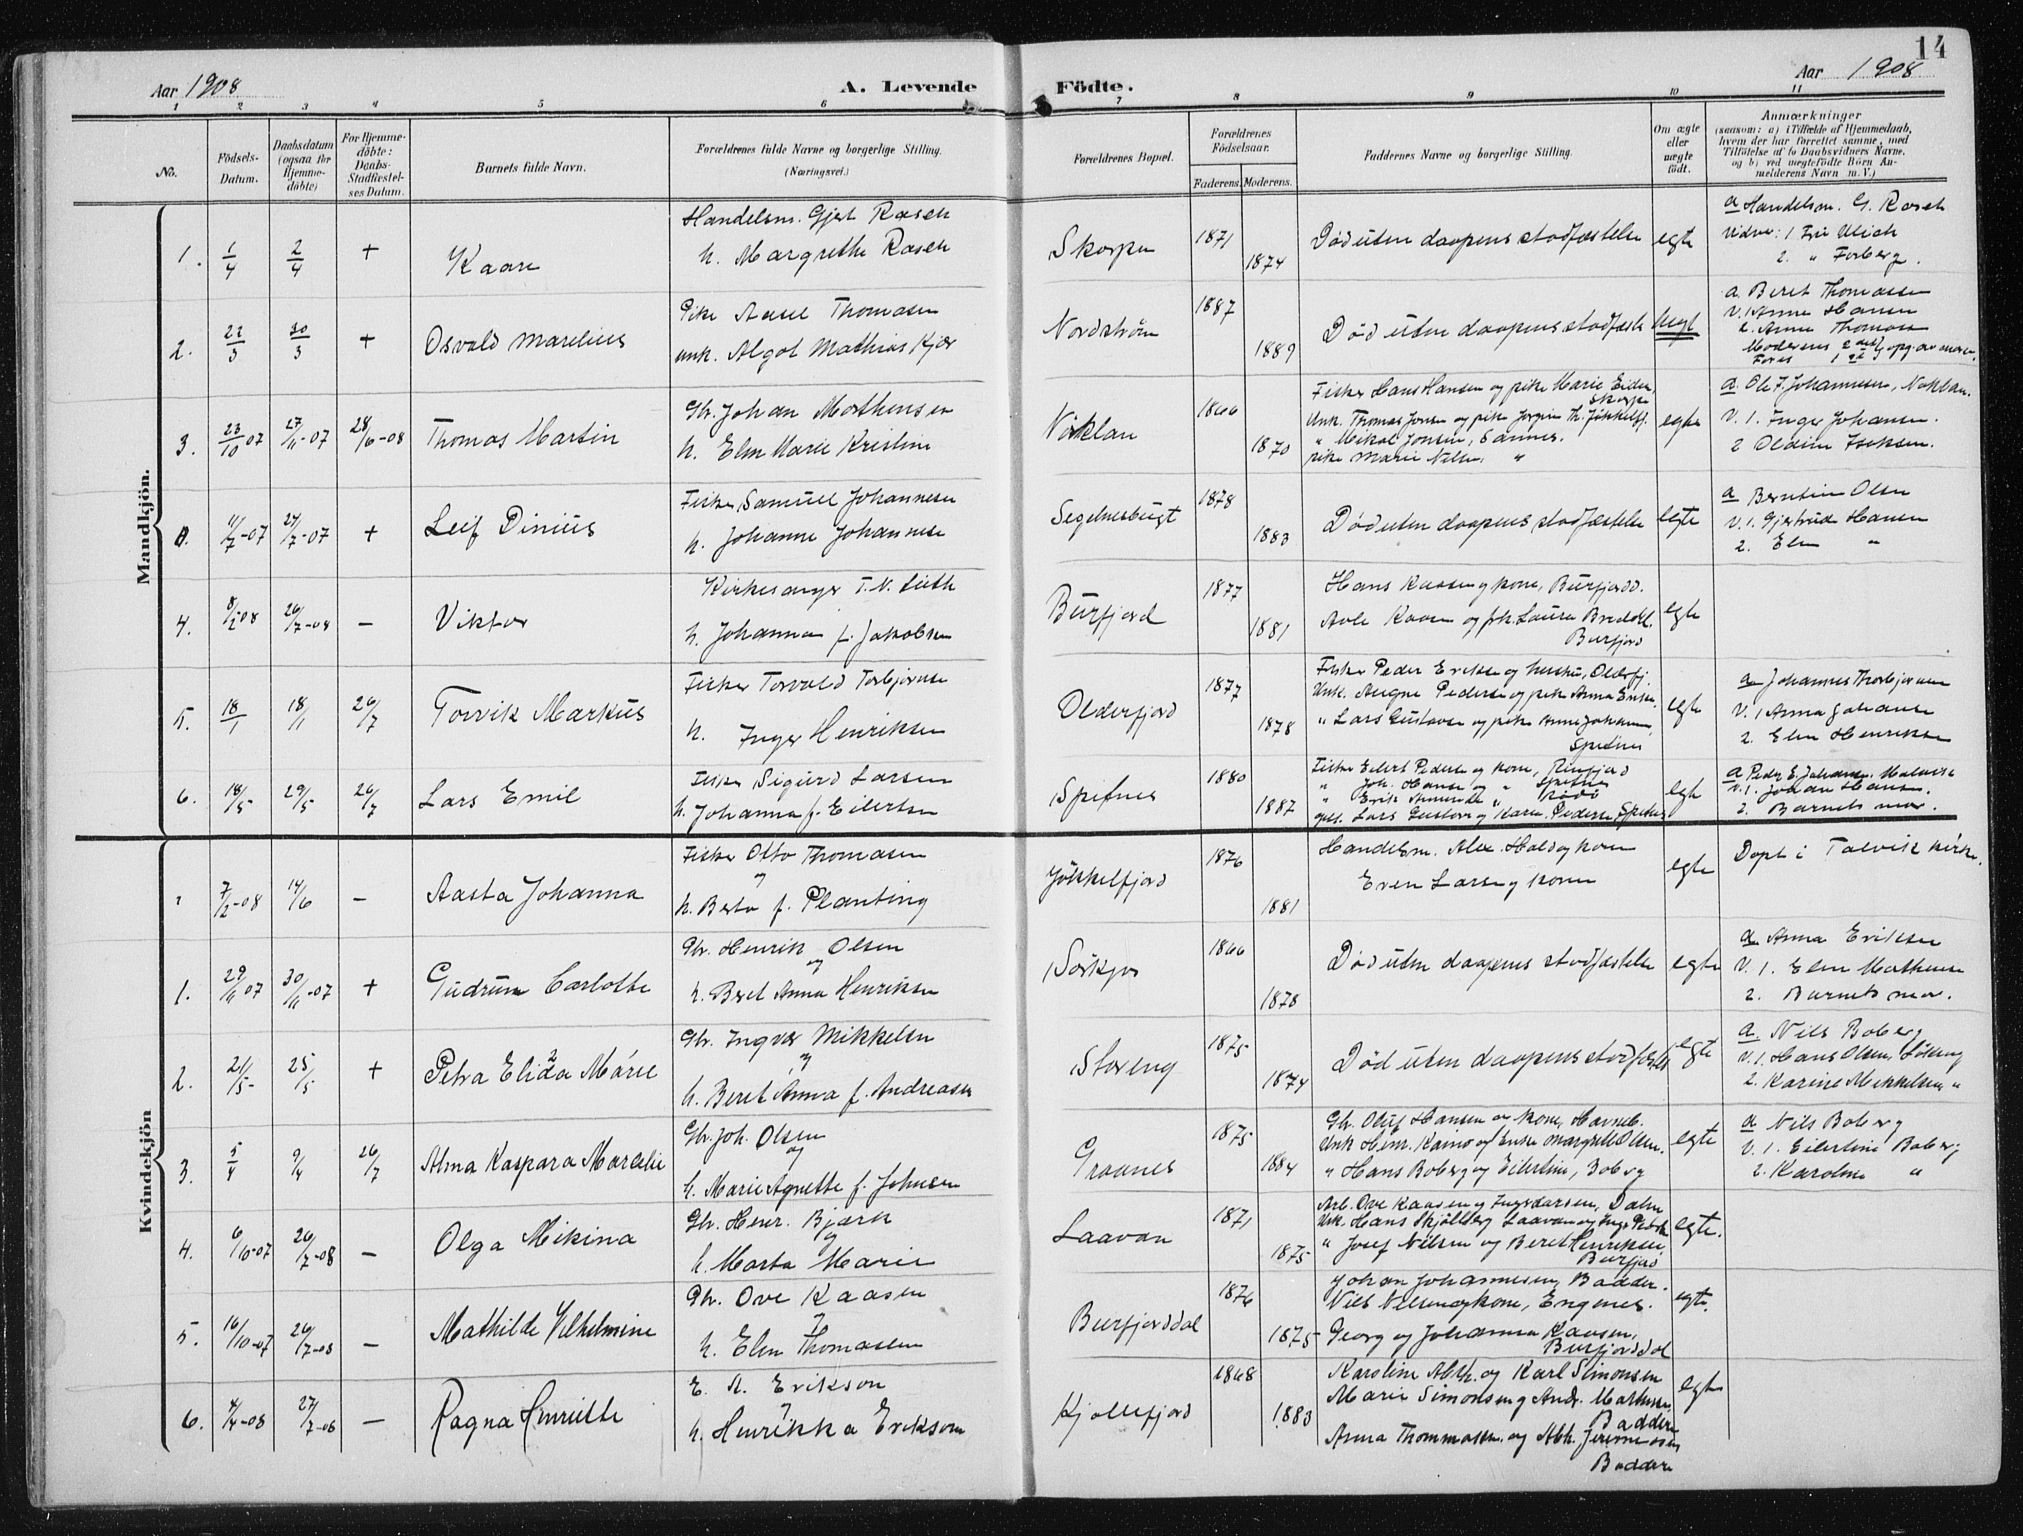 14
Aar 1908
A. Levende
Födte.
Aar 1908
1 2 3 4 5 6 7 8 9 10 11
No.
Födsels-Datum.
Daabsdatum (ogsaa for Hjemmedöbte)
For Hjemmedöbte: Daabs-Stadfæstelses Datum.
Barnets fulde Navn.
Forældrenes fulde Navne og borgerlige Stilling. (Næringsvei.)
Forældrenes Bopæl.
Forældrenes Födselsaar.
Faderens. Moderens.
Faddernes Navne og borgerlige Stilling.
Om ægte eller uægte födt.
Anmærkninger (saasom: a) i Tilfælde af Hjemmedaab, hvem der har forrettet samme, med Tilföielse af to Daabsvidners Navne, og b) ved uægtefödte Börn Anmelderens Navn m. V.)
Mandkjön.
1. 1/4 2/4 + Kaare
Handelsm. Gjert Rasch
h. Margrethe Rasch
Skorpen 1871 1874
Död uten daapens stadfæstelse egte
a Handelsm. G. Rasch
Vidne: 1 Frü Ulich
2. " Forberg.
2. 22/3 30/3 + Osvald Marelius
Pike Aasel Thomasen
unk. Algot Mathias Kjær
Nordström 1887 1889
Död uten daapens stadfæste uegt
a. Beret Thomasen
V. 1 Anne Hansen
2. Anne Thomass
3. 23/10 07 27/11-07 28/6-08 Thomas Martin
Gbr. Johan Morthensen
h. Elen Marie Kristine
Nöklan 1866 1870
Fisker Hans Hansen og pike Marie Eider, Skorpe
Unk. Thomas Jonsen og pike Jörgine Th. Jökkelfj.
" Mikal Jonsen, Sannes.
pike Marie Nilsen "
egte
a. Ole J. Johannesen, Nöklan.
V. 1. Inger Johansen.
2 Oldine Isaksen.
0. 11/7-07 27/7-07 + Leif Dinius
Fisker Samuel Johannesen
h. Johanne Johannesen
Segelnesbugt 1878 1883
Död uten daapens stadfæstelse egte
a Berntine Olsen
V. 1. Gjertrude Hansen
2. Elen "
4. 8/2 08 26/7-08 - Viktor
Kirkesanger T. N. Lieth
h. Johanna f. Jakobsen
Burfjord 1877 1881
Hans Kaasen og kone, Burfjord.
Avle Kaasen og frk. Laura Breddel.
Burfjord
egte
5. 18/1 18/1 26/7 Torvik Markus
Fisker Torvald Torbjörnsen
h. Inger Henriksen
Olderfjord 1877 1878
Fisker Peder Eriksen og hustru, Olderfj.
Unk. Augne Pedersen og pike Anna Eriksen.
" Lars Gustavsen og pike Anne Johansen,
Spitnes
egte
a Johannes Thorbjörnsen
V. 1 Anna Johansen
2. Elen Henriksen
6. 18/5 29/5 26/7 Lars Emil
Fisker Sigurd Larsen
h. Johanna f. Eilertsen
Spitnes 1880 1887
Fisker Eilert Pedersen og kone,
" Joh. Hansen og " Spitnes
gift. Lars Gustavsen og Karen Pedersen Spitnes
egte
a Peder E. Johansen. Malvik
V. 1. Johan Hansen.
2. Barnets mor.
Kvindekjön
7/2-08 14/6 - Aasta Johanna
Fisker Otto Thomasen
og
h. Berta f. Planting
Jökkelfjord 1876 1881
Handelsm. Alex. Hals og kone
Even Larsen og kone
egte
Döpt i Talvik kirke.
1. 29/11 07 30/11-07 + Gudrun Carlotte
Gbr. Henrik Olsen
og
h. Beret Anna Henriksen
Sörkjos 1866 1878
Död uten daapens stadfæstelse egte
a Anna Eriksen
V. 1. Elen Mathisen
2. Barnets mor.
2. 21/5- 25/5 + Petra Elida Marie
Gbr. Ingvar Mikkelsen
og
h. Beret Anna f. Andreasen
Storeng 1875 1874
Död uten daapens stadfæstelse egte
a Nils Boberg
V. 1. Hans Olsen,
2. Karine Mikkelsen "
3. 5/4 9/4 26/7 Alma Kaspara Marelie
Gbr. Joh. Olsen
og
h. Marie Agnette f. Johnsen
Graanes 1875 1884
Gbr. Oluf Hansen og kone, Havneb.
Unk Henr. Kaino og Enke Margrethe Olsen.
" Hans Boberg og Eilertine, Boberg
egte
a Nils Boberg
V. 1. Eilertine Boberg
2. Karoline "
4. 6/10-07 26/7-08 - Olga Mikina
Gbr. Henr. Bjærk
og
h. Marta Marie
Laavan 1871 1875
Arb. Ove Kaasen og Inga Larsen, Dalen
Unk. Hans Skjölberg Laavan og
" Josef Nilsen og Beret Henriksen,
Burfjord
egte.
5. 16/10-07 26/7-08 - Mathilde Vilhelmine
Gbr. Ove Kaasen
og
h. Elen Thomassen
Burfjorddal 1876 1875
Johan Johannesen, Badder.
Nils Nilsen og kone, Engenes.
Georg og Johanna Kaasen,
Burfjorddal
egte.
6. 4/4-08 27/7-08 - Ragna Henriette
E. A. Erikson
og
h. Henrikka Erikson
Kjöllefjord 1868 1883
Karoline Abrh. og Karl Simonsen
Marie Simonsen og Andr. Mathisen,
Baddern
Anna Thommasen og Abh. Jerimeasen
Baddern
egte